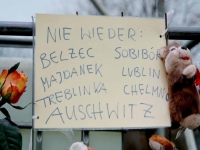 NIE WIEDER:
BELZEC SOBIBÓR
MAJDANEK LUBLIN
TREBLINKA CHELMNO
AUSCHWITZ